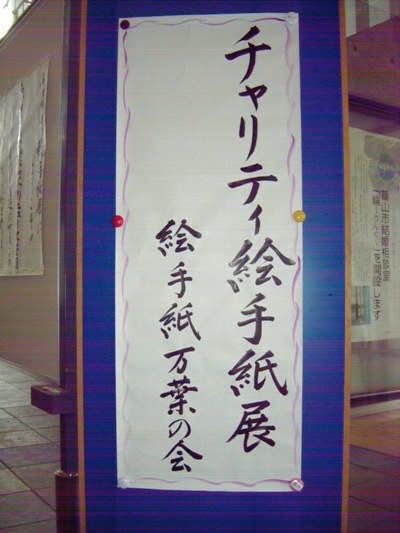 チャリティ絵手紙展
絵手紙万葉の会
館山市結婚相談室
を開設します